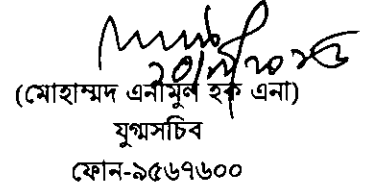 (মোহাম্মদ এনামুল হক এনা)
যুগ্মসচিব
ফোন-৯৫৬৭৬০০